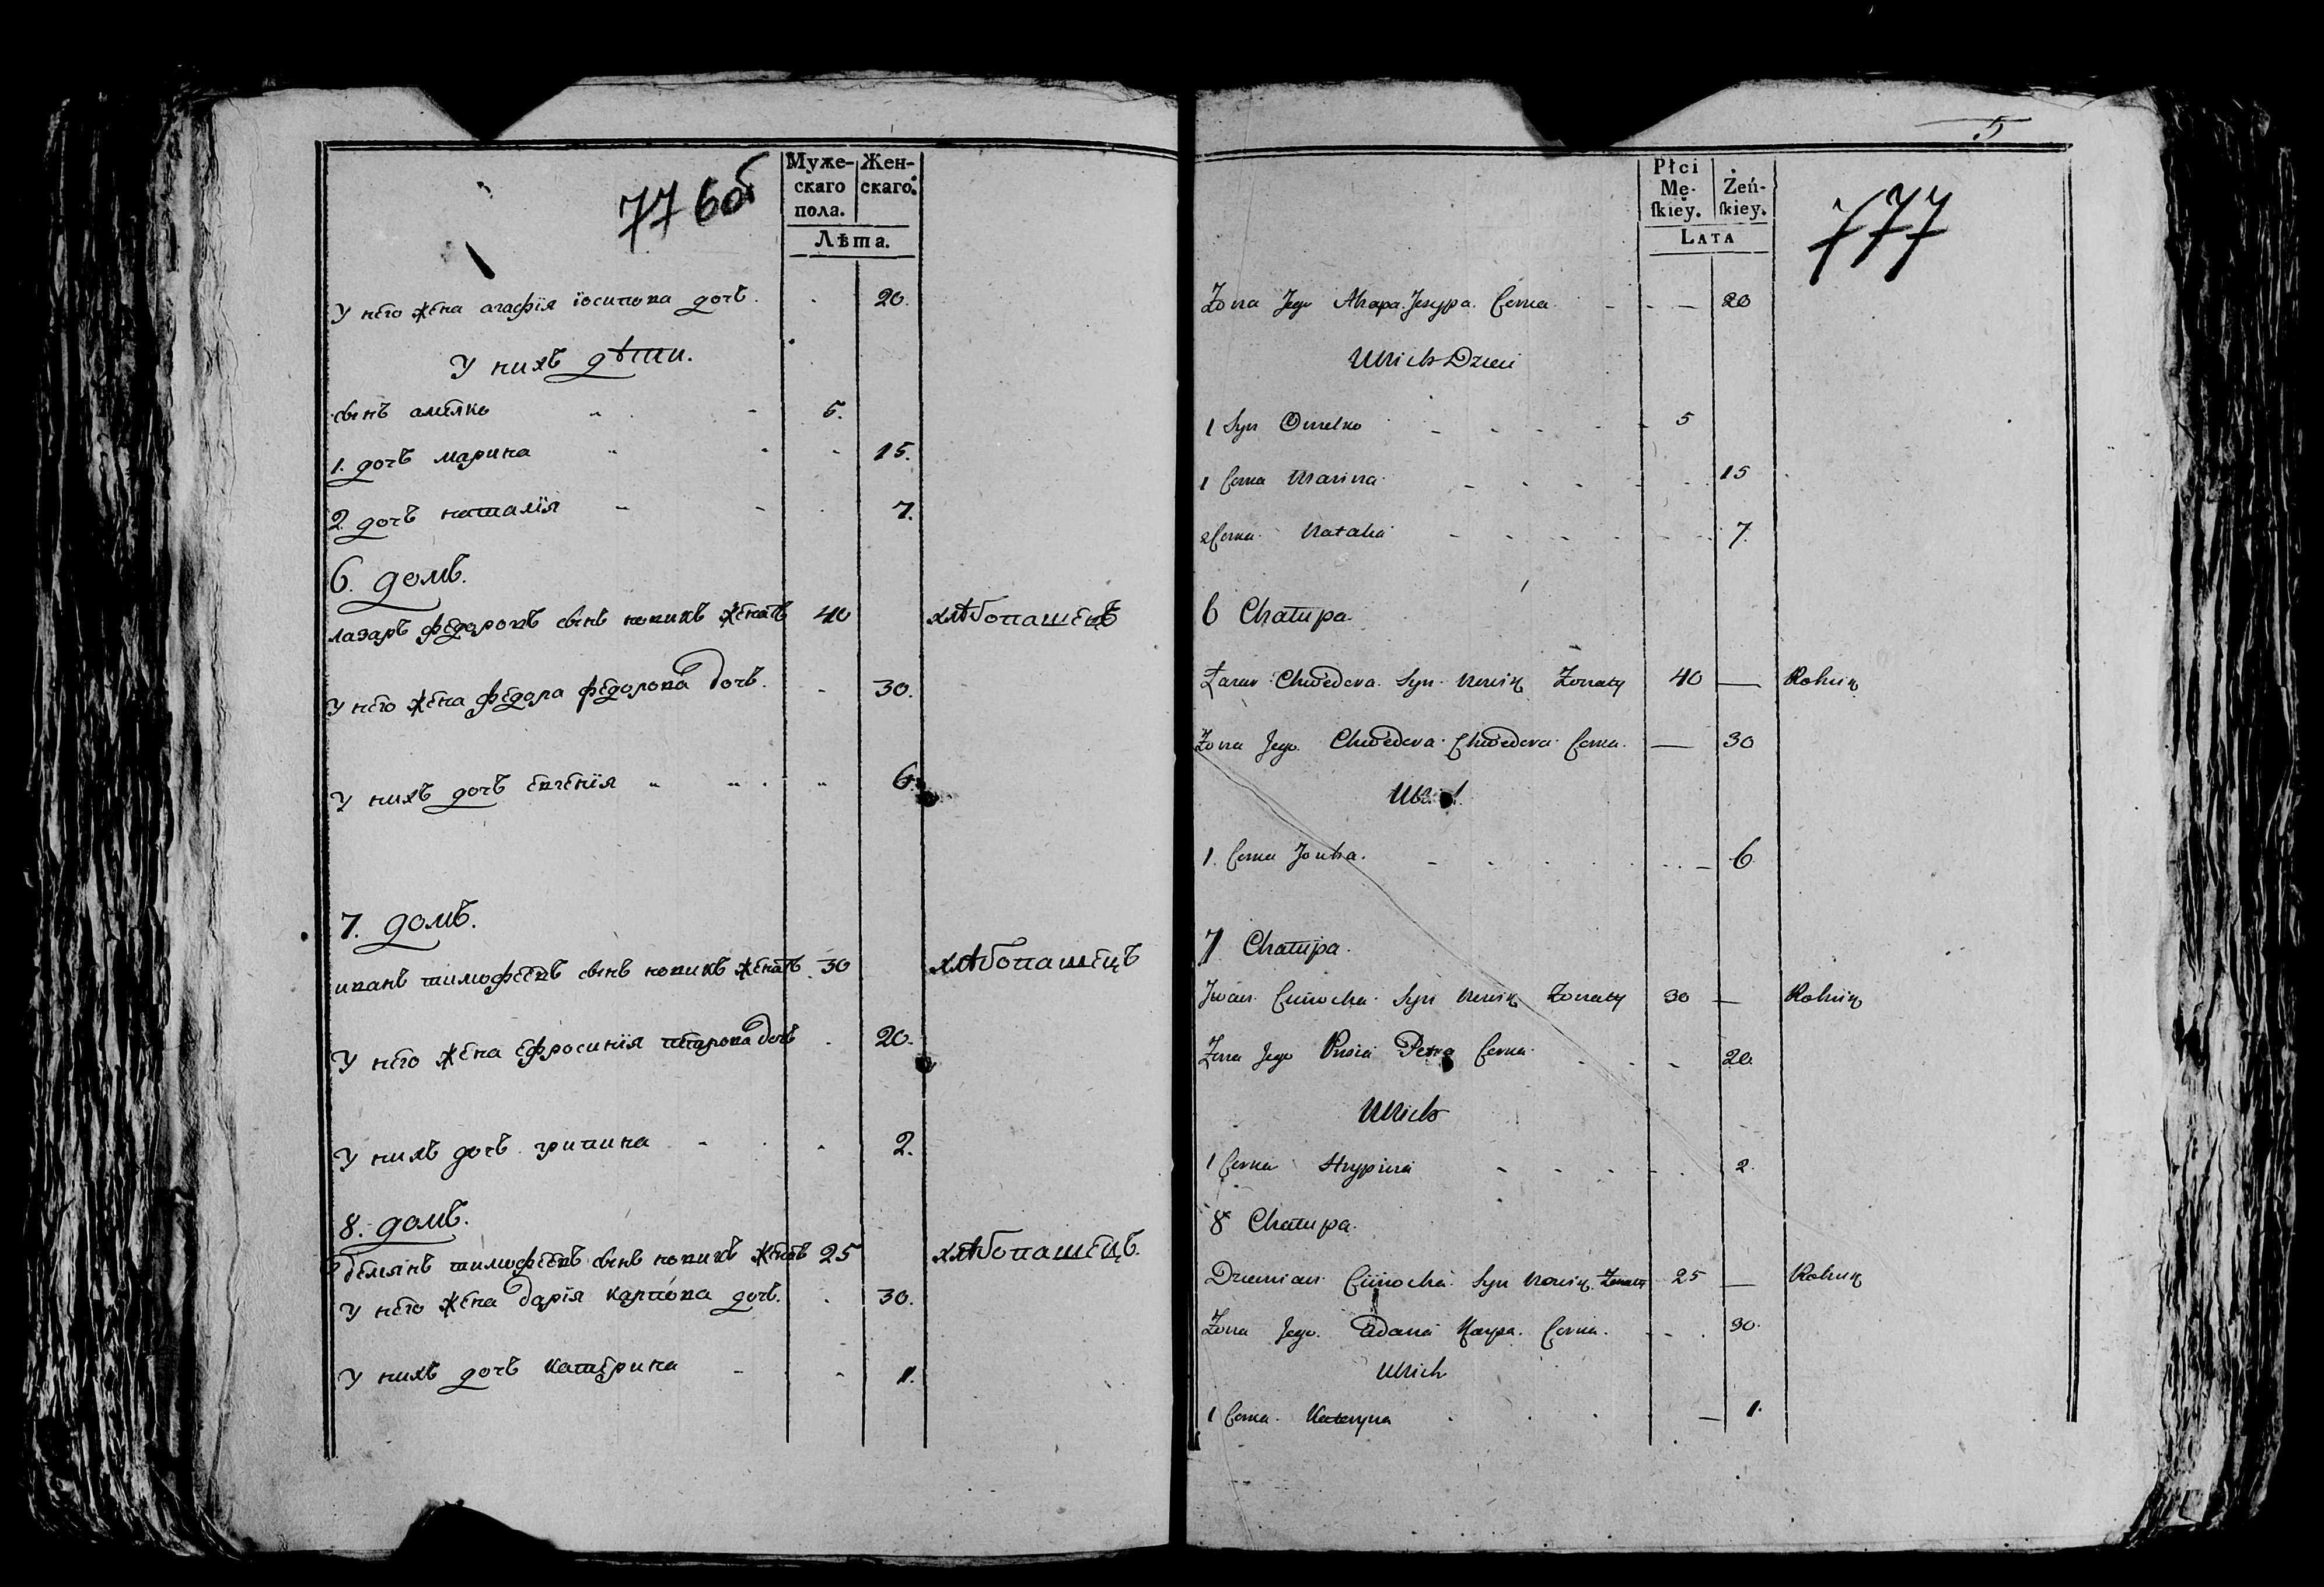 776об
Муже-
скаго
пола.
Жен-
скаго.
Лѣта.
У него жена агафїя їосипова дочъ. 20.
У нихъ дѣти.
сынъ амелко 5.
1. дочъ марина 15.
2. дочъ наталїя 7.
6. домъ.
лазаръ федоровъ сынъ новикъ женатъ 40 хлѣбопашецъ
У него жена федора федорова дочъ. 30.
У нихъ дочъ евгенїя 6.
7. домъ.
иванъ тимофеевъ сынъ новикъ женатъ 30 хлѣбопашецъ
У него жена ефросинїя петрова дочъ 20.
У нихъ дочъ грипина 2.
8. домъ.
демянъ тимофеевъ сынъ новикъ женатъ 25 хлѣбопашецъ.
У него жена дарїя карпова дочъ. 30.
У нихъ дочъ катерина 1.
5
777
Płci
Mę-
skiey.
Żeń-
skiey.
LATA
Zona Jego Ahapa Jesypa Corka 20
U Nich Dzieci
1 Syn Omelko 5
1 Corka Marina 15
2 Corka Natalia 7.
6 Chałupa.
Łazar Chwedora Syn Nowik Zonaty 40 — Rolnik
Zona Jego Chwedora Chwedora Corka. — 30
1. Corka Jouha. 6
7 Chałupa.
Jwan Cimocha Syn Nowik Zonaty 30 — Rolnik
Zona Jego Prosia Petra Corka 20.
U Nich
1 Corka Hrypina 2.
8 Chałupa.
Dziemian Cimocha Syn Nowik Zonaty 25 — Rolnik
Zona Jego Karpa Corka. 30.
U Nich
1 Corka Kateryna — 1.